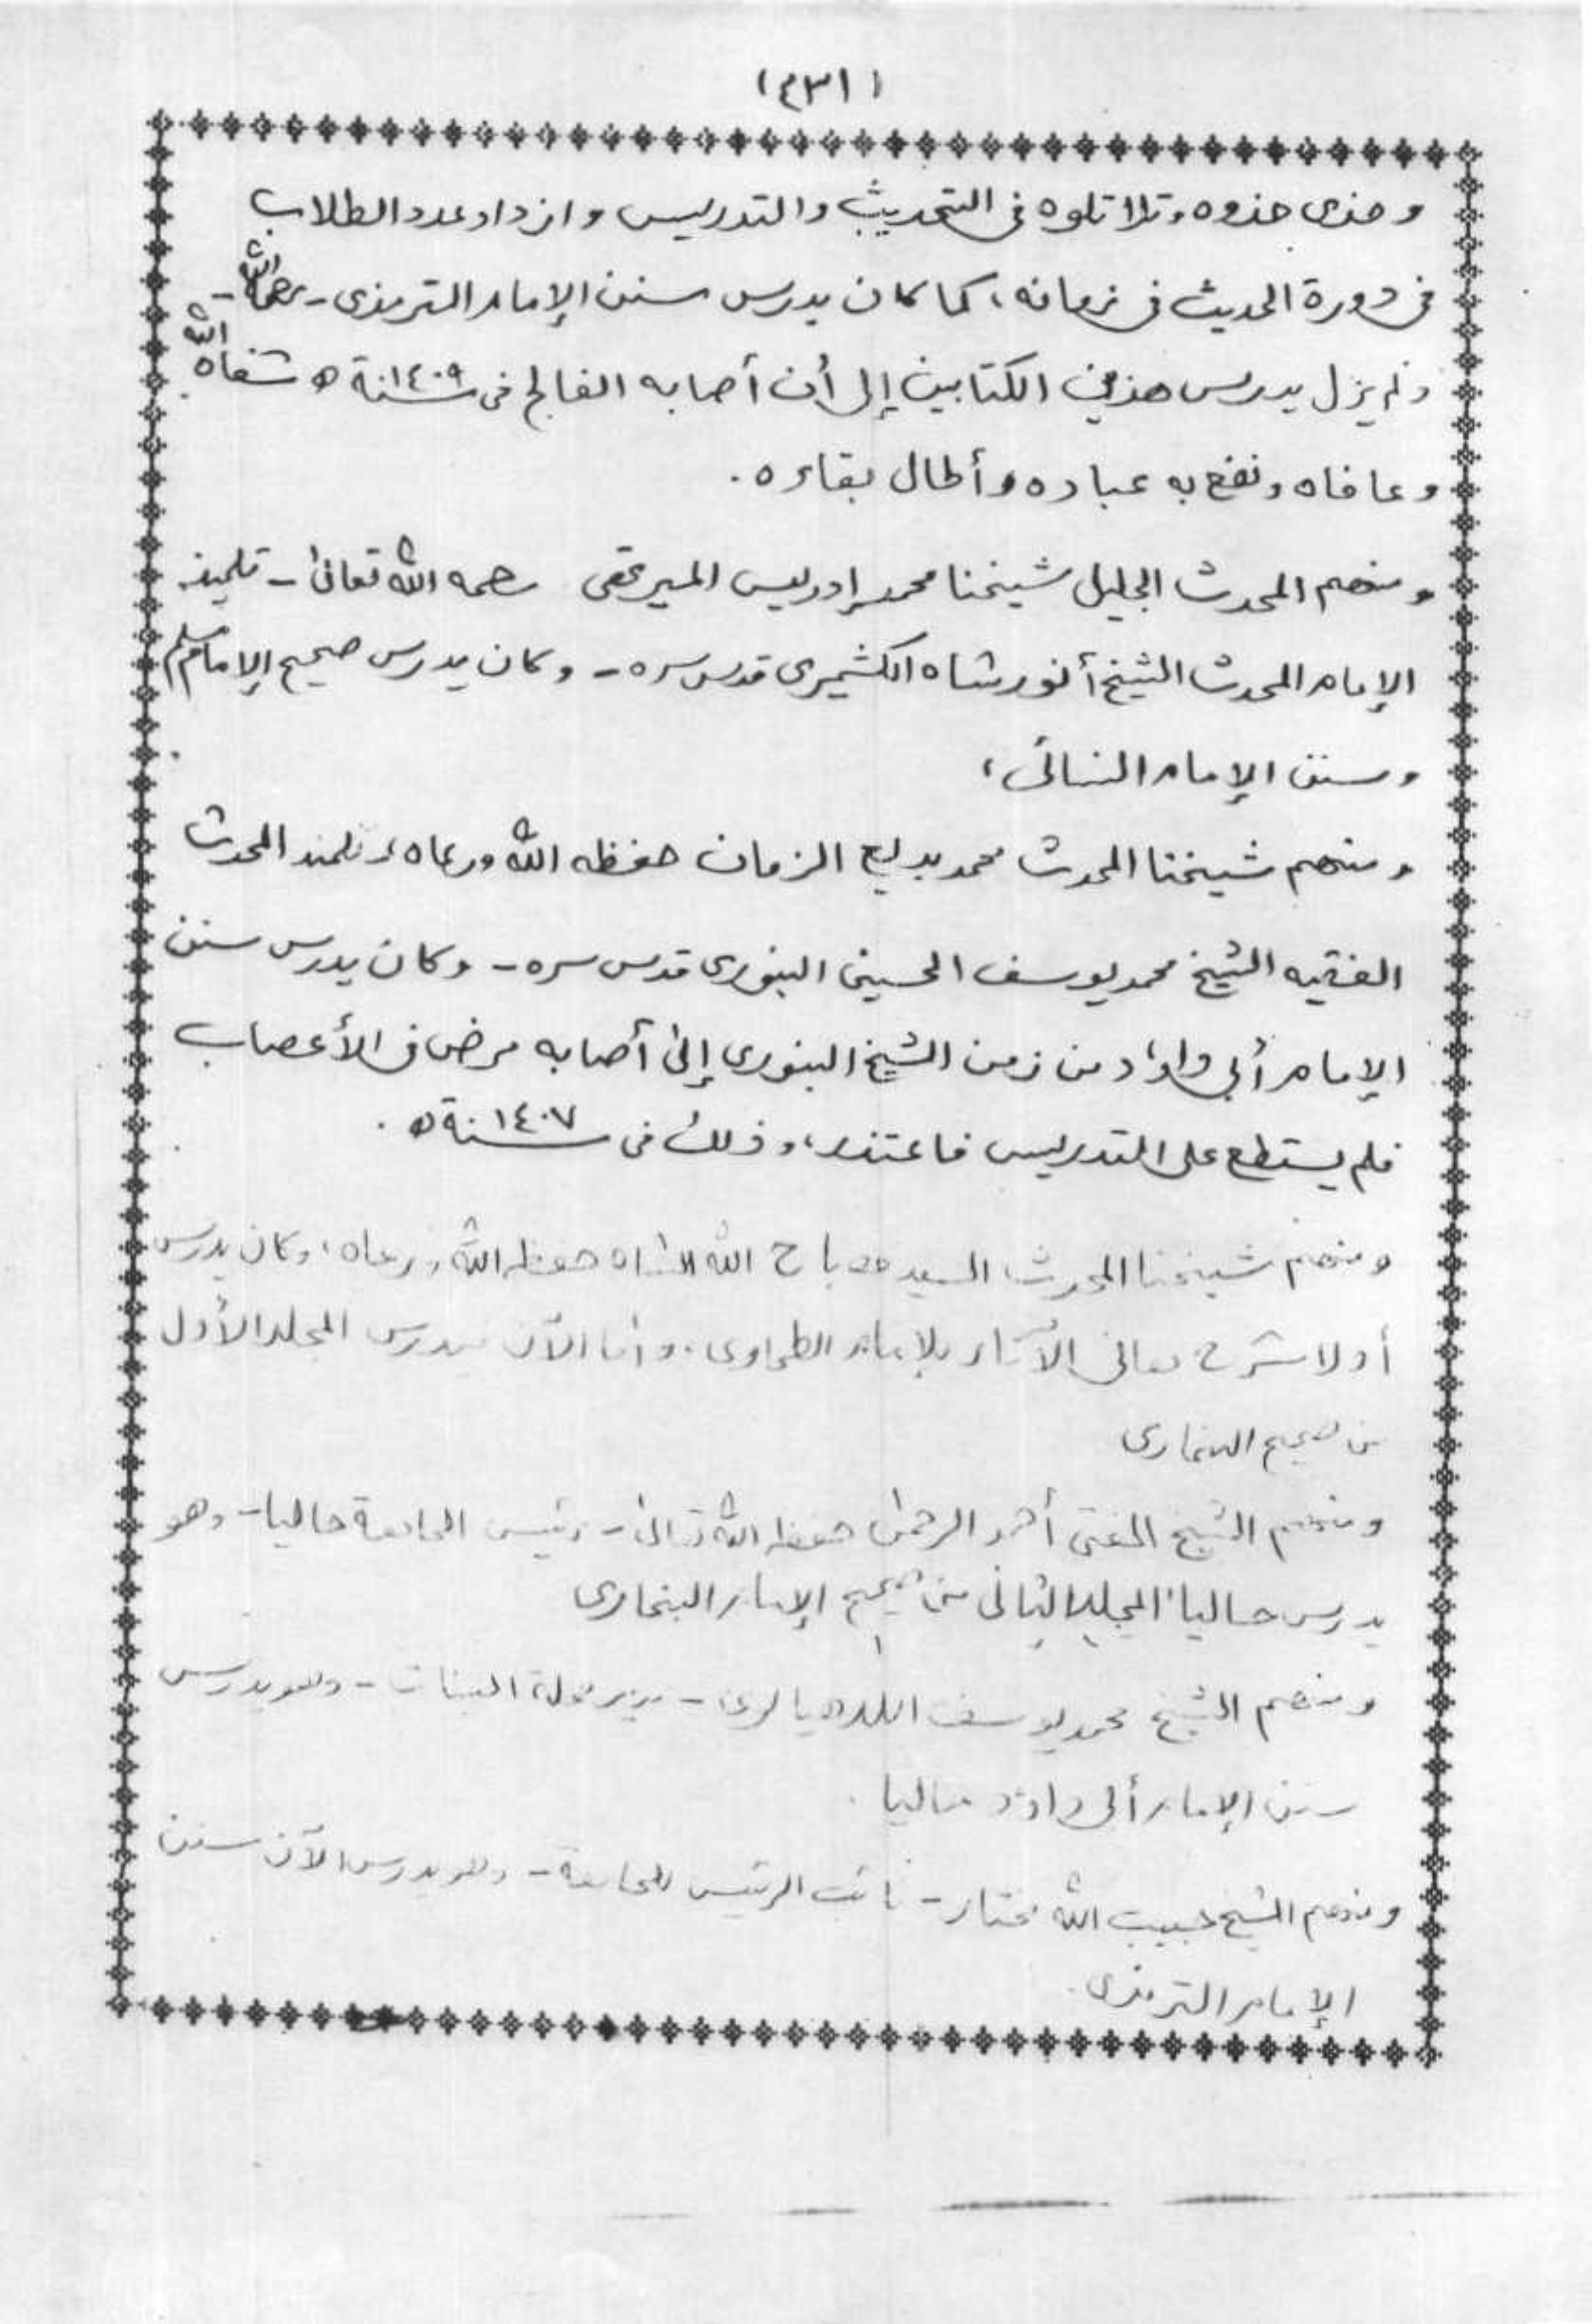 (٤٣١)
وحذى حذوه وتلا تلوه فى التحديث والتدريس وازداد عدد الطلاب
فى دورة الحديث فى زمانه، كما كان يدرس سنن الإمام الترمذى - رحمه الله -
ولم يزل يدرس هذين الكتابين إلى أن أصابه الفالج فى سنة ١٤٠٩ ه شفاه الله
وعافاه ونفع به عباده وأطال بقاءه .
ومنهم المحدث الجليل شيخنا محمد إدريس الميرتهى رحمه الله تعالى - تلميذ
الإمام المحدث الشيخ أنور شاه الكشميرى قدس سره - وكان يدرس صحيح الإمام مسلم
وسنن الإمام النسائى ،
ومنهم شيخنا المحدث محمد بديع الزمان حفظه الله ورعاه، تلميذ المحدث
الفقيه الشيخ محمد يوسف الحسينى البنورى قدس سره - وكان يدرس سنن
الإمام أبى داؤد من زمن الشيخ البنورى إلى أصابه مرض فى الأعصاب
فلم يستطع على التدريس فاعتذر، وذلك فى سنة ١٤٠٧ ه .
ومنهم شيخنا المحدث السيد مصباح الله الشاه حفظه الله ورعاه، وكان يدرس
أولا شرح معانى الآثار للإمام الطحاوى . وأما الآن يدرس المجلد الأول
من صحيح البخارى
ومنهم الشيخ المفتى أحمد الرحمن حفظه الله تعالى - رئيس الجامعة حاليا - وهو
يدرس حاليا المجلد الثانى من صحيح الإمام البخارى
ومنهم الشيخ محمد يوسف اللدهيانوى - مدير مجلة البينات - وهو يدرس
سنن الإمام أبى داؤد حاليا .
ومنهم الشيخ حبيب الله مختار - نائب الرئيس للجامعة - وهو يدرس الآن سنن
الإمام الترمذى .